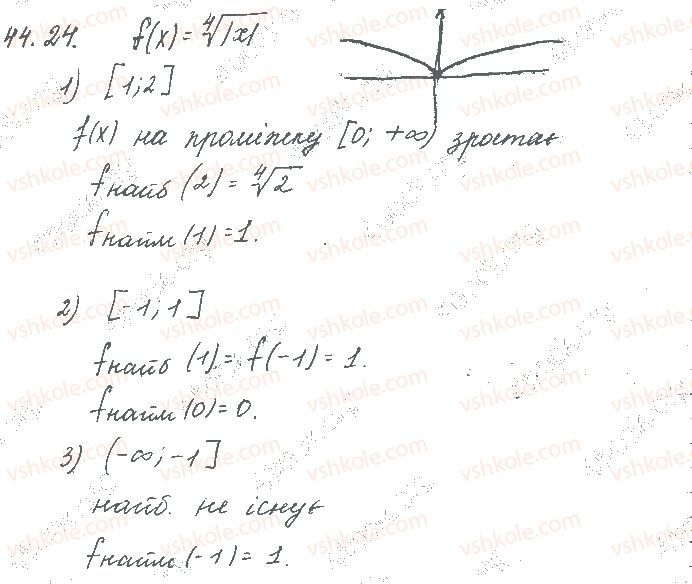 44.24. f(x) = ∜|x|
1) [1;2]
f(x) на проміжку [0; +∞) зростає
fнайб (2) = ∜2
fнайм (1) = 1.
2) [-1; 1]
fнайб (1) = f(-1) = 1.
fнайм (0) = 0.
3) (-∞; -1]
найб. не існує
fнайм (-1) = 1.
vshkole.com